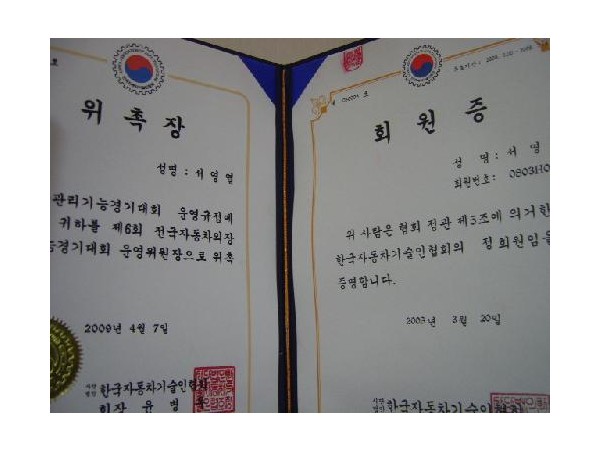 호
위촉장
성명 : 서영열
관리기능경기대회 운영규정에
귀하를 제6회 전국자동차외장
능경기대회 운영위원장으로 위촉
2009년 4월 7일
사단법인 한국자동차기술인협회
회장 윤병
제 호
회원증
성 명 : 서 영
회원번호 : 0803110
위 사람은 협회 정관 제3조에 의거한
한국자동차기술인협회의 정회원임을
증명합니다.
3월 20일
사단법인 한국자동차기술인협회